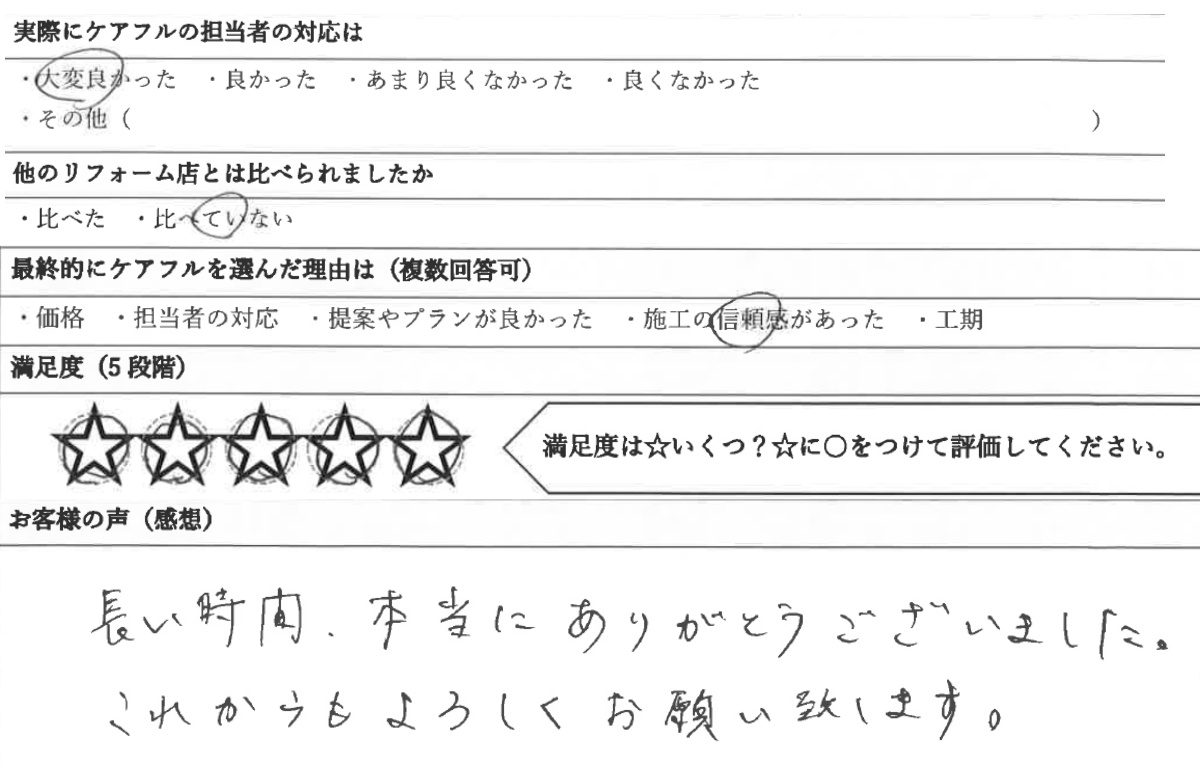 実際にケアフルの担当者の対応は
・大変良かった ・良かった ・あまり良くなかった ・良くなかった
・その他（ ）
他のリフォーム店とは比べられましたか
・比べた ・比べていない
最終的にケアフルを選んだ理由は（複数回答可）
・価格 ・担当者の対応 ・提案やプランが良かった ・施工の信頼感があった ・工期
満足度（5段階）
満足度は☆いくつ？☆に〇をつけて評価してください。
お客様の声（感想）
長い時間、本当にありがとうございました。
これからもよろしくお願い致します。